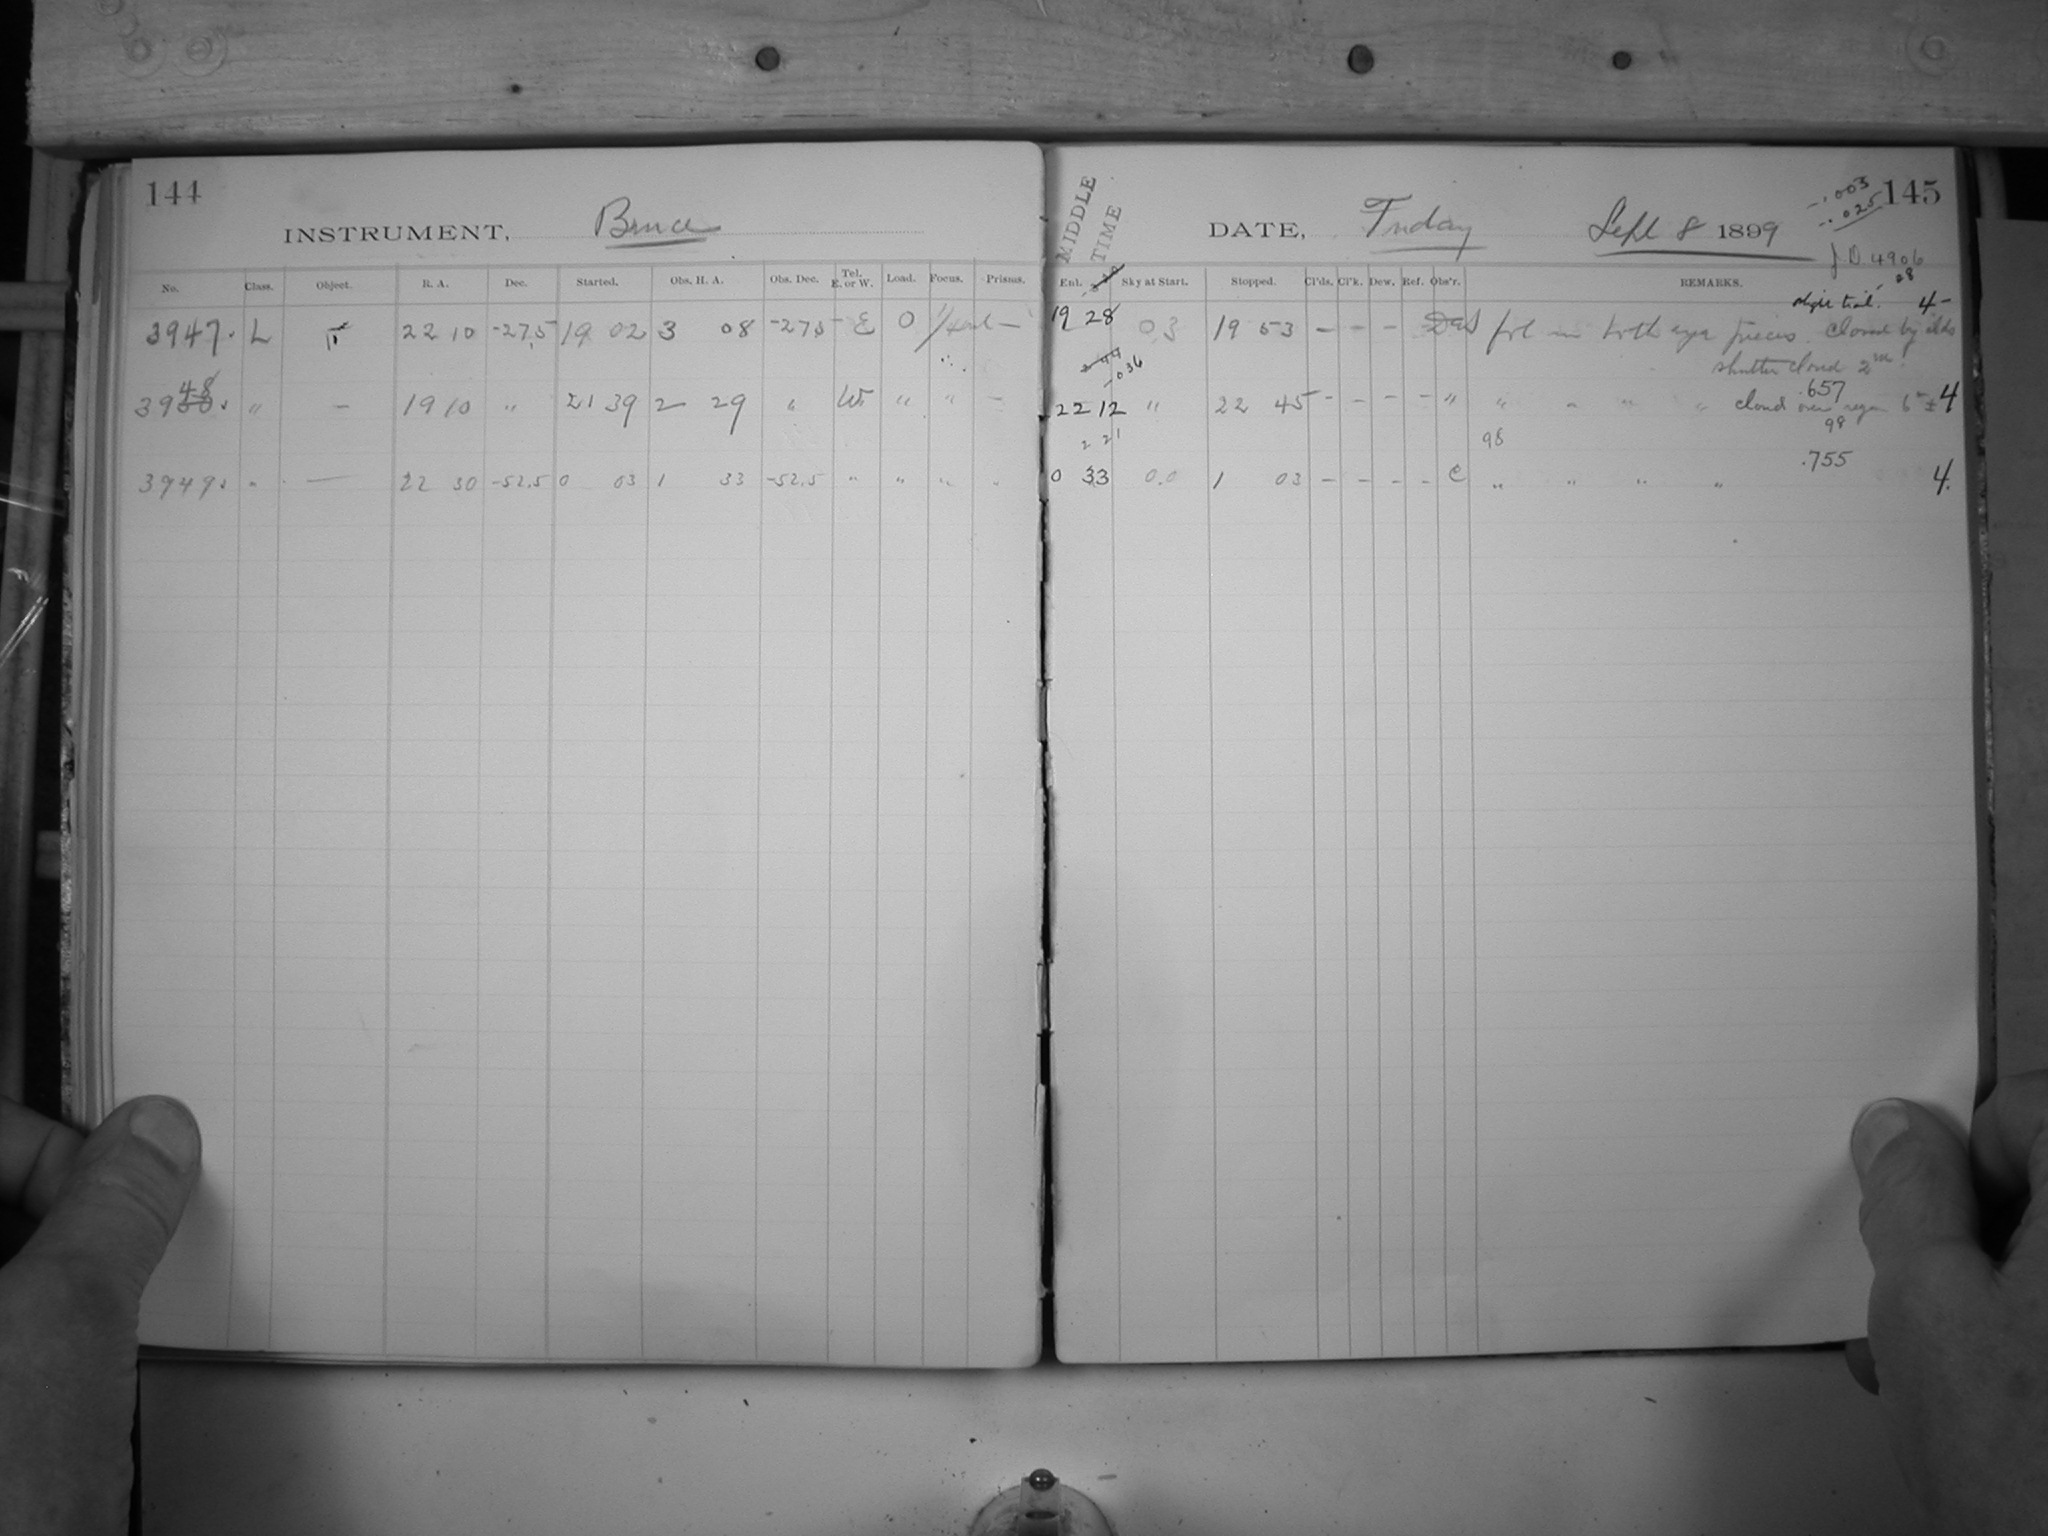 144
INSTRUMENT, Bruce
No. Class. Object. R. A. Dec. Started. Obs. H. A. Obs. Dec. Tel. E. or W. Load. Focus. Prisms.
3947. L 22 10 -27.5 19 02 3 08 -27.5 E 0 —
3948. " — 19 10 " 21 39 2 29 " W " " —
3949. " — 22 30 -52.5 0 03 1 33 -52.5 " " " "
MIDDLE TIME
145
DATE, Friday Sept 8 1899
-.003
-.025
J.D. 4906
08
Ent. Sky at Start. Stopped. Cl'ds. Cl'k. Dew. Ref. Obs'r. REMARKS.
slight trail. 4-
19 28 03 19 53 — — — in both eye pieces. Closed by clds
shutter closed 2m
-036
.657
22 12 " 22 45 — — — — " " " " " cloud over region 6m ± 4
98
2 21
98
.755
0 33 0.0 1 03 — — — — C " " " " 4.